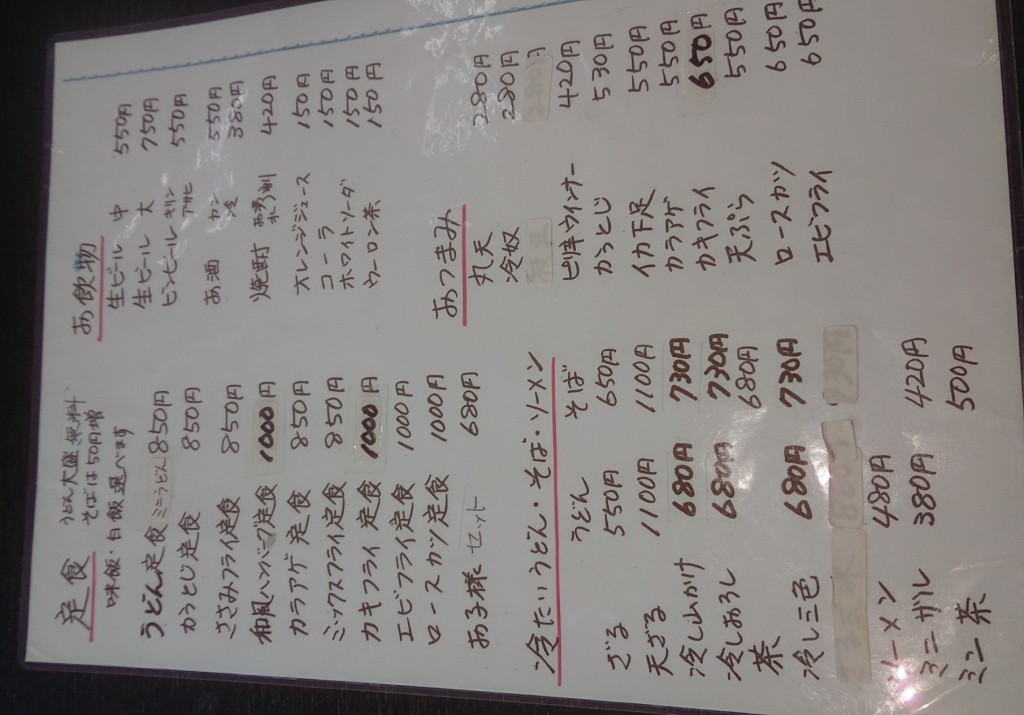 定食
うどん大盛無料
そばは50円増
味飯・白飯選べます
うどん定食 ミニうどん 850円
かつとじ定食 850円
ささみフライ定食 850円
和風ハンバーグ定食 1000円
カラアゲ定食 850円
ミックスフライ定食 850円
カキフライ定食 1000円
エビフライ定食 1000円
ロースカツ定食 1000円
お子様セット 680円
お飲物
生ビール 中 550円
生ビール 大 750円
ビンビール キリン アサヒ 550円
お酒 カン 550円
冷 380円
焼酎 お湯割 水割 420円
オレンジジュース 150円
コーラ 150円
ホワイトソーダ 150円
ウーロン茶 150円
冷たいうどん・そば・ソーメン
うどん そば
ざる 550円 650円
天ざる 1100円 1100円
冷し山かけ 680円 730円
冷しおろし 680円 730円
茶 680円
冷し三色 680円 730円
ソーメン 480円
ミニザル 380円 420円
ミニ茶 500円
おつまみ
丸天 280円
冷奴 280円
ピリ辛ウィンナー 420円
かつとじ 530円
イカ下足 550円
カラアゲ 550円
カキフライ 650円
天ぷら 550円
ロースカツ 650円
エビフライ 650円